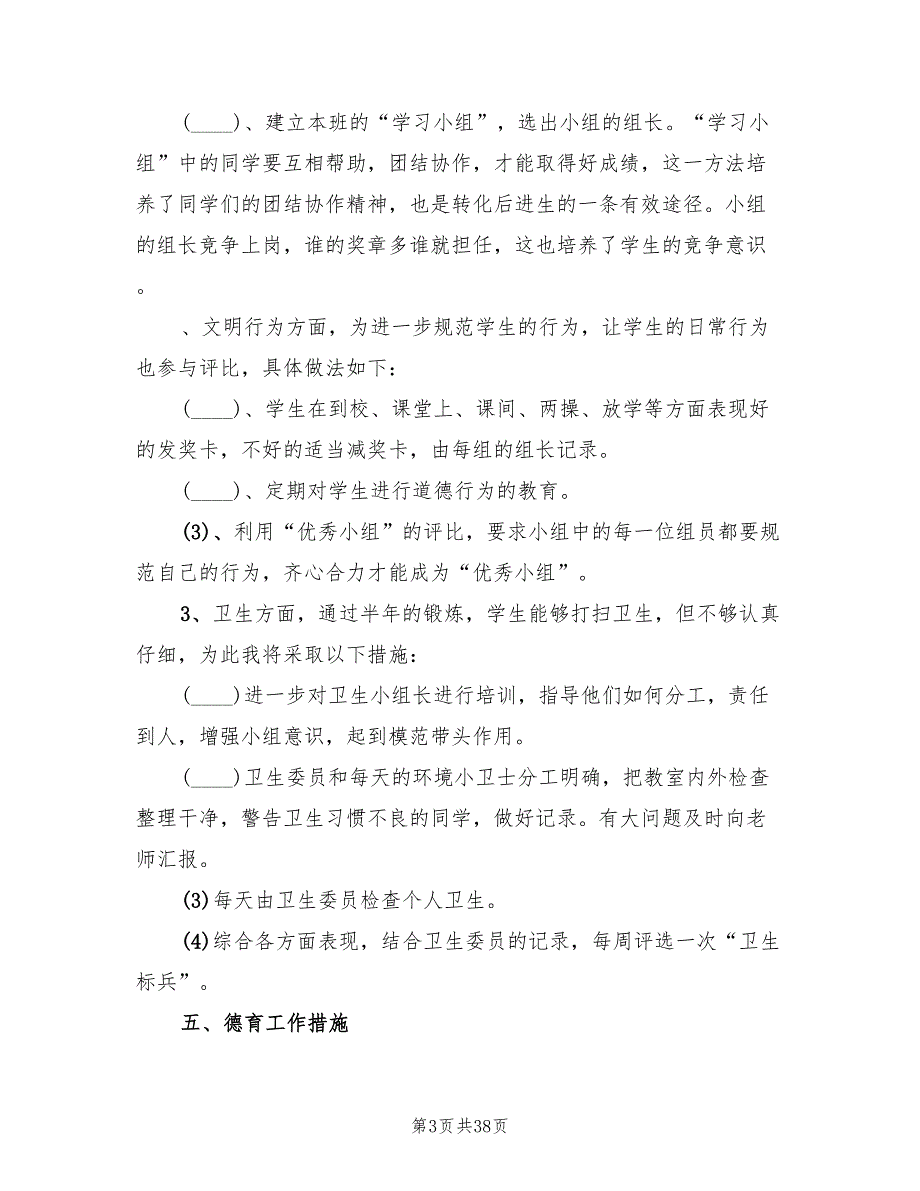 (____)、建立本班的“学习小组”，选出小组的组长。“学习小
组”中的同学要互相帮助，团结协作，才能取得好成绩，这一方法培
养了同学们的团结协作精神，也是转化后进生的一条有效途径。小组
的组长竞争上岗，谁的奖章多谁就担任，这也培养了学生的竞争意识
。
、文明行为方面，为进一步规范学生的行为，让学生的日常行为
也参与评比，具体做法如下：
(____)、学生在到校、课堂上、课间、两操、放学等方面表现好
的发奖卡，不好的适当减奖卡，由每组的组长记录。
(____)、定期对学生进行道德行为的教育。
(3)、利用“优秀小组”的评比，要求小组中的每一位组员都要规
范自己的行为，齐心合力才能成为“优秀小组”。
3、卫生方面，通过半年的锻炼，学生能够打扫卫生，但不够认真
仔细，为此我将采取以下措施：
(____)进一步对卫生小组长进行培训，指导他们如何分工，责任
到人，增强小组意识，起到模范带头作用。
(____)卫生委员和每天的环境小卫士分工明确，把教室内外检查
整理干净，警告卫生习惯不良的同学，做好记录。有大问题及时向老
师汇报。
(3)每天由卫生委员检查个人卫生。
(4)综合各方面表现，结合卫生委员的记录，每周评选一次“卫生
标兵”。
五、德育工作措施
第3页共38页